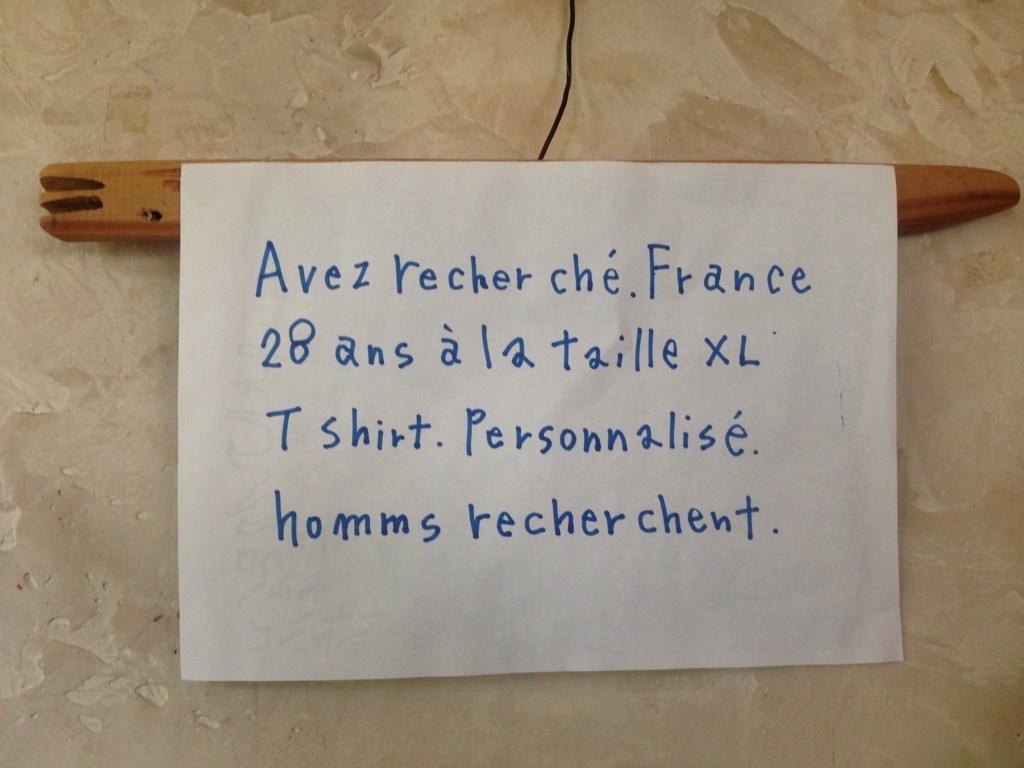 Avez recherché. France
28 ans à la taille XL
T shirt. Personnalisé.
homms recherchent.